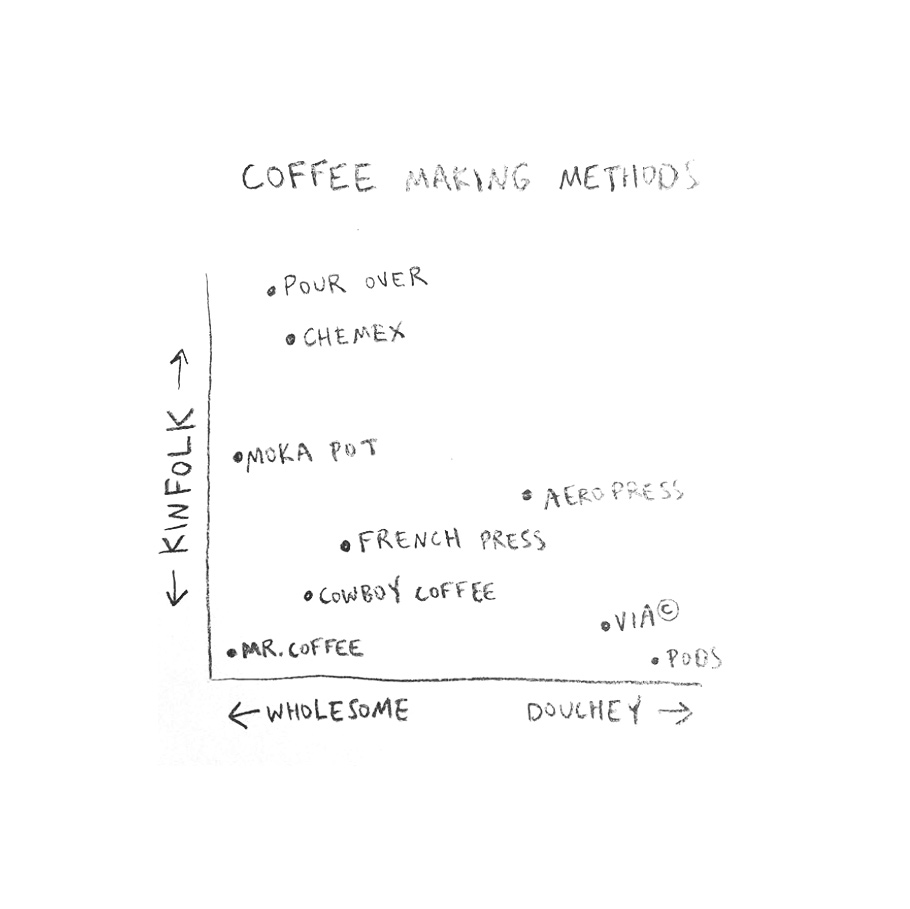 COFFEE MAKING METHODS
POUR OVER
CHEMEX
MOKA POT
AEROPRESS
FRENCH PRESS
COWBOY COFFEE
VIA©
MR. COFFEE
PODS
← KINFOLK →
← WHOLESOME
DOUCHEY →